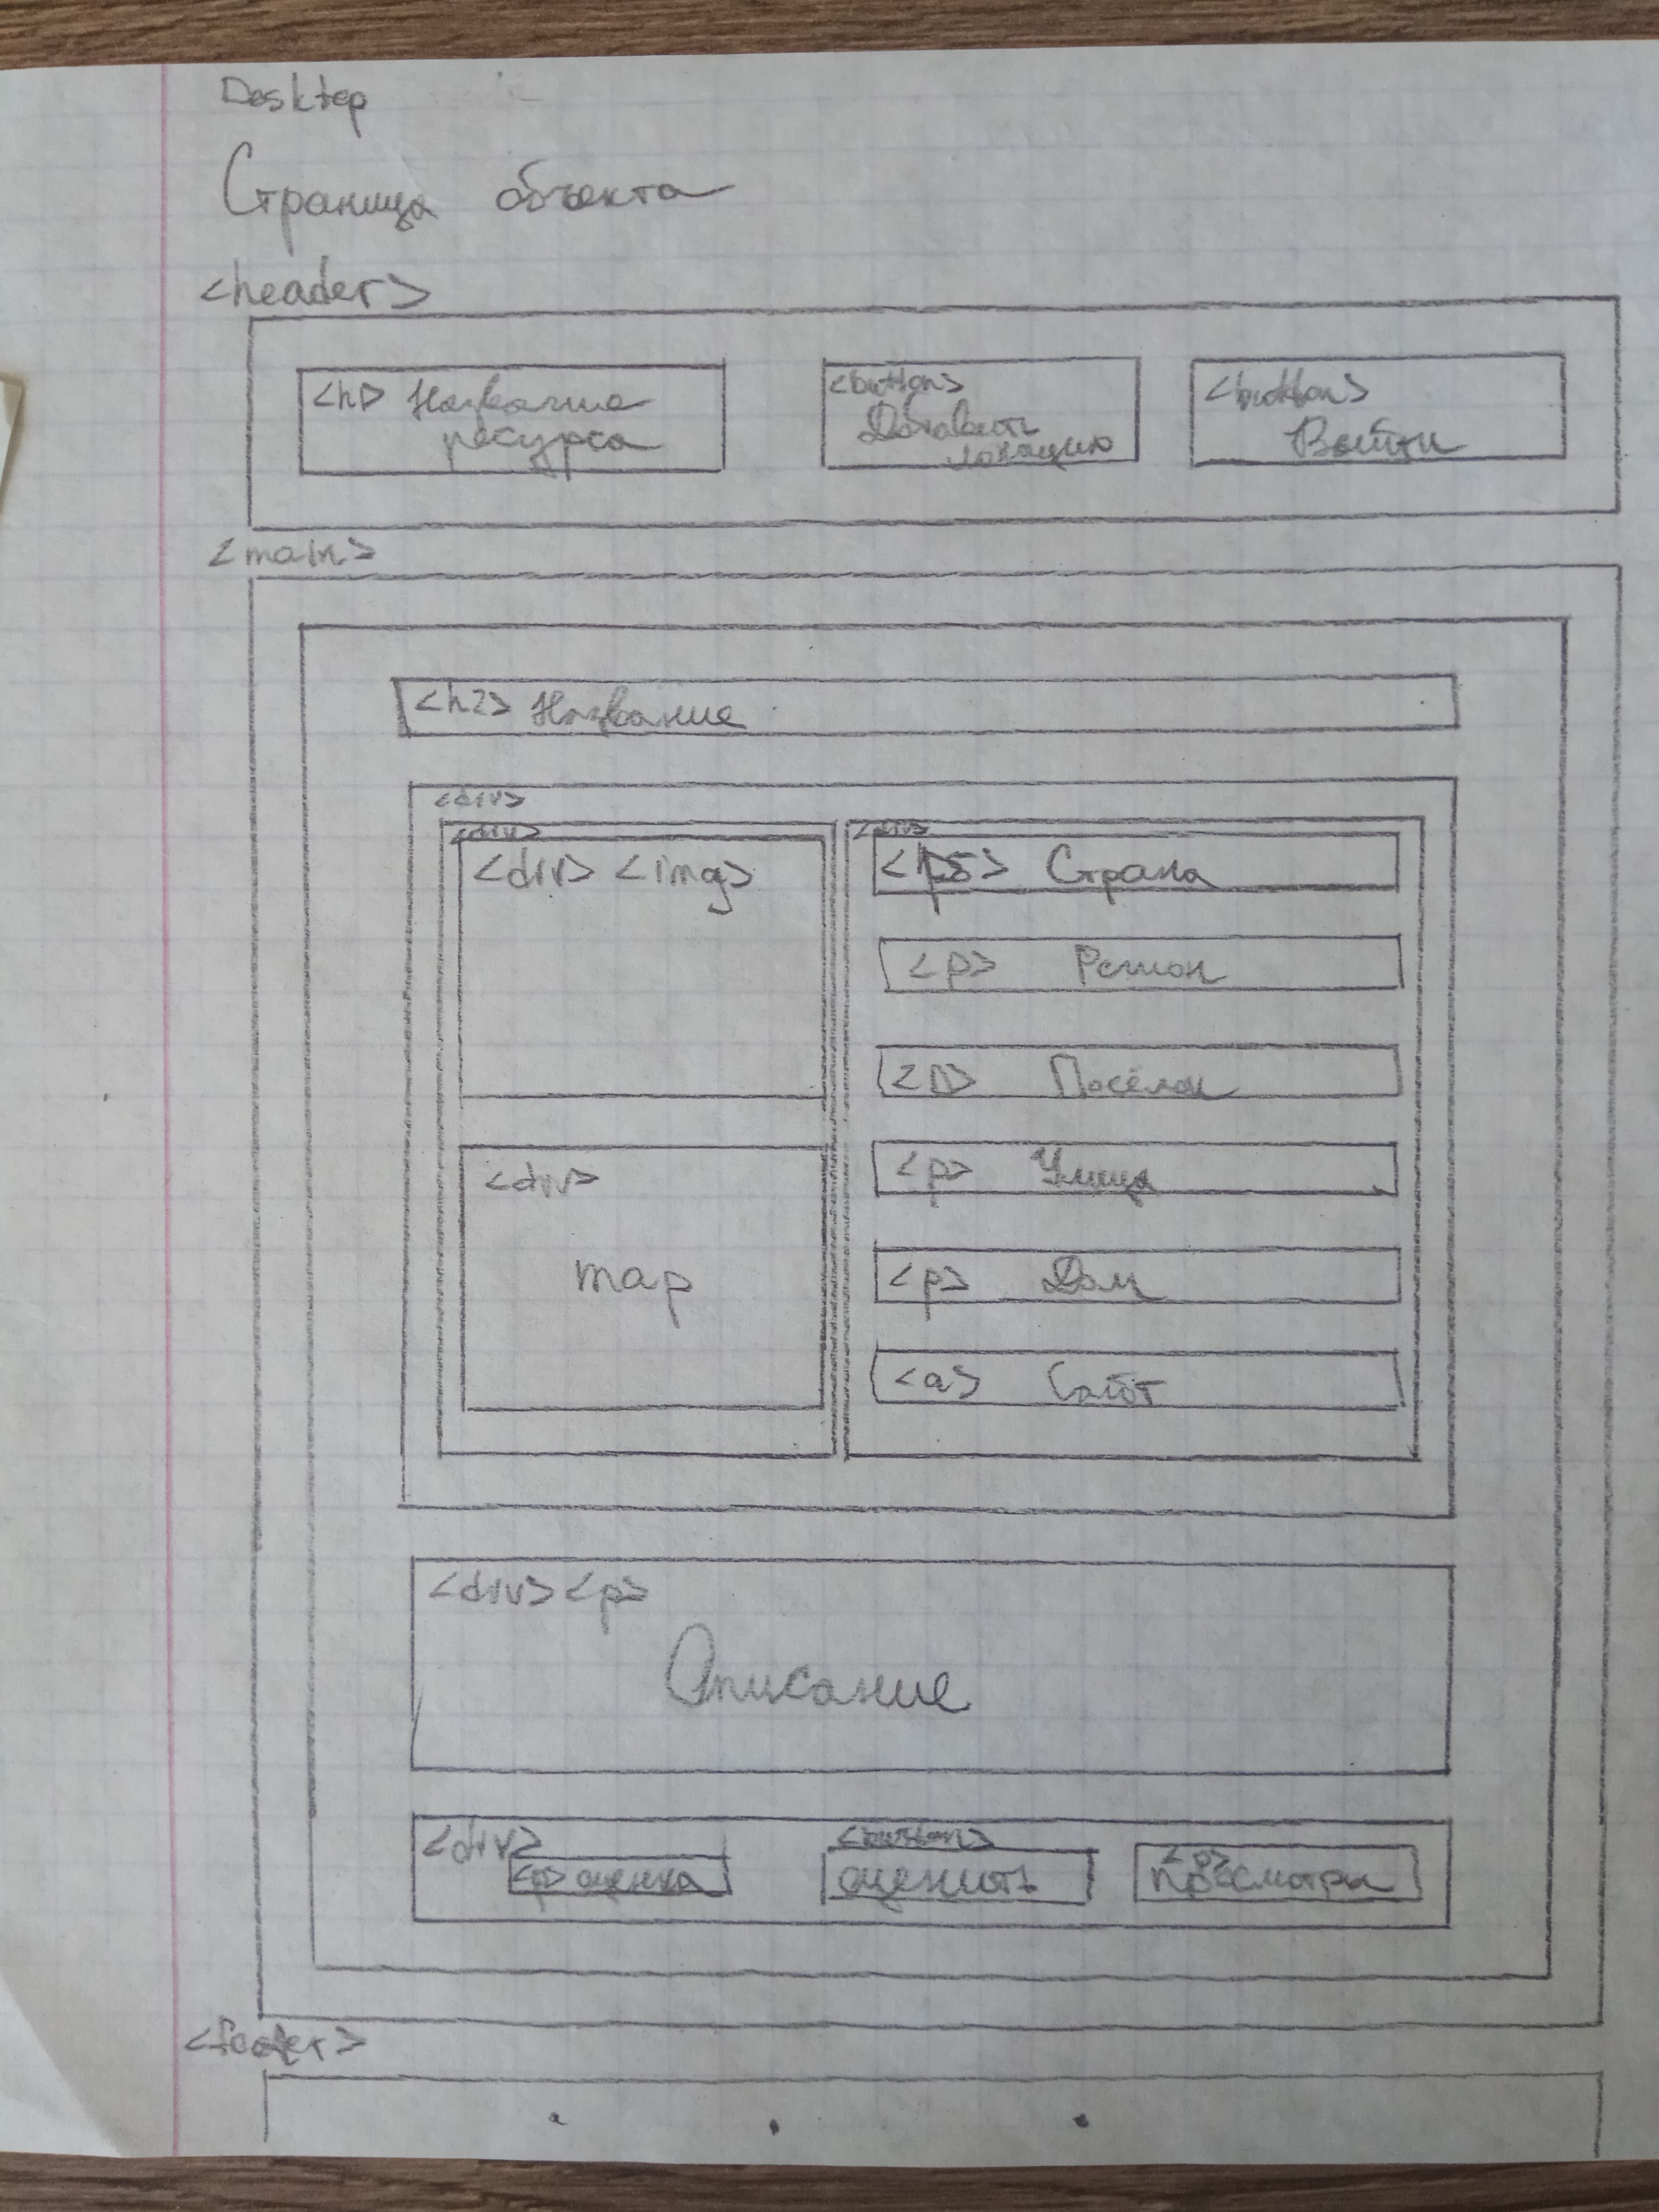 Desktop
Страница объекта
<header>
<h1> Название
ресурса
<button>
Добавить
локацию
<button>
Войти
<main>
<h2> Название
<div>
<div>
<div> <img>
<div>
map
<div>
Страна
<p> Регион
<p> Посёлок
<p> Улица
<p> Дом
<a> Сайт
<div> <p>
Описание
<div>
<p> оценка
<button>
оценить
<p>
просмотры
<footer>